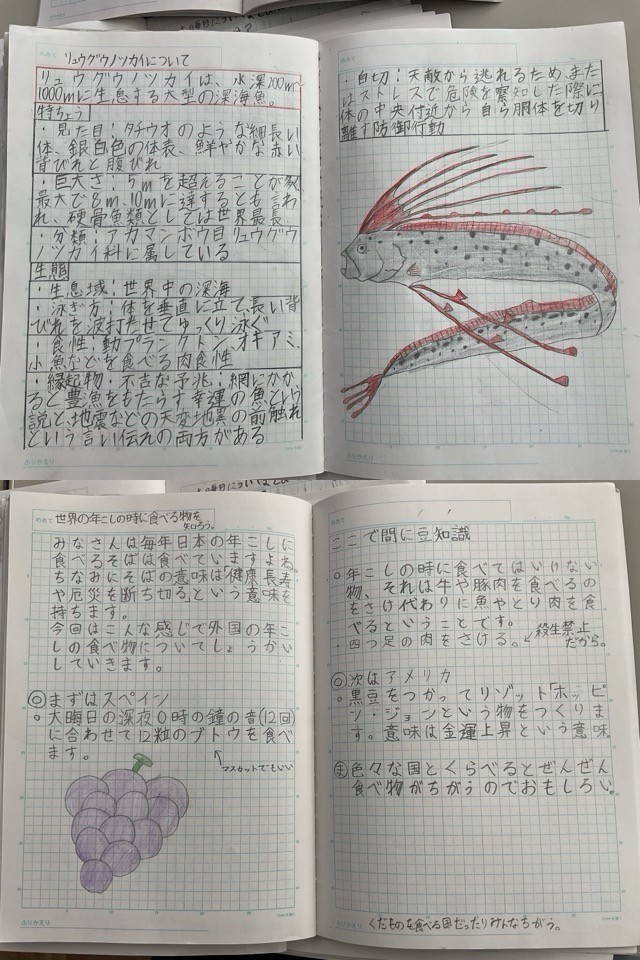 リュウグウノツカイについて
リュウグウノツカイは、水深200m~
1000mに生息する大型の深海魚。
特ちょう
・見た目:タチウオのような細長い
体、銀白色の体表、鮮やかな赤い
背びれと腹びれ
・巨大さ:5mを超えることが多く
最大で8m、10mに達するとも言わ
れ、硬骨魚類としては世界最長
・分類:アカマンボウ目リュウグウ
ノツカイ科に属している
生態
・生息域:世界中の深海
・泳ぎ方:体を垂直に立て、長い背
びれを波打たせてゆっくり泳ぐ
・食性:動プランクトン、オキアミ、
小魚などを食べる肉食性
・縁起物・不吉な予兆:網にかか
ると豊魚をもたらす幸運の魚という
説と、地震などの天変地異の前触れ
という言い伝えの両方がある
ふりかえり
・自切:天敵から逃れるため、また
はストレスで危険を察知した際に
体の中央付近から自ら胴体を切り
離す防御行動
めあて
世界の年こしの時に食べる物を
知ろう。
みなさんは毎年日本の年こしに
食べるそばは食べていますよね。
ちなみにそばの意味は「健康長寿
や厄災を断ち切る」という意味を
持ちます。
今回はこんな感じで外国の年こ
しの食べ物についてしょうかい
していきます。
◎まずはスペイン
○大晦日の深夜0時の鐘の音(12回)
に合わせて12粒のブドウを食べ
ます。
↑
マスカットでもいい
ふりかえり
めあて
ここで間に豆知識
○年こしの時に食べてはいけない
物、それは牛や豚肉を食べるの
をさけ代わりに魚やとり肉を食
べるということです。
・四つ足の肉をさける。←殺生禁止
だから。
◎次はアメリカ
○黒豆をつかってリゾット「ホッピ
ン・ジョンという物をつくりま
す。意味は金運上昇という意味
ま色々な国とくらべるとぜんぜん
食べ物がちがうのでおもしろい。
ふりかえり
くだものを食べる国だったりみんなちがう。